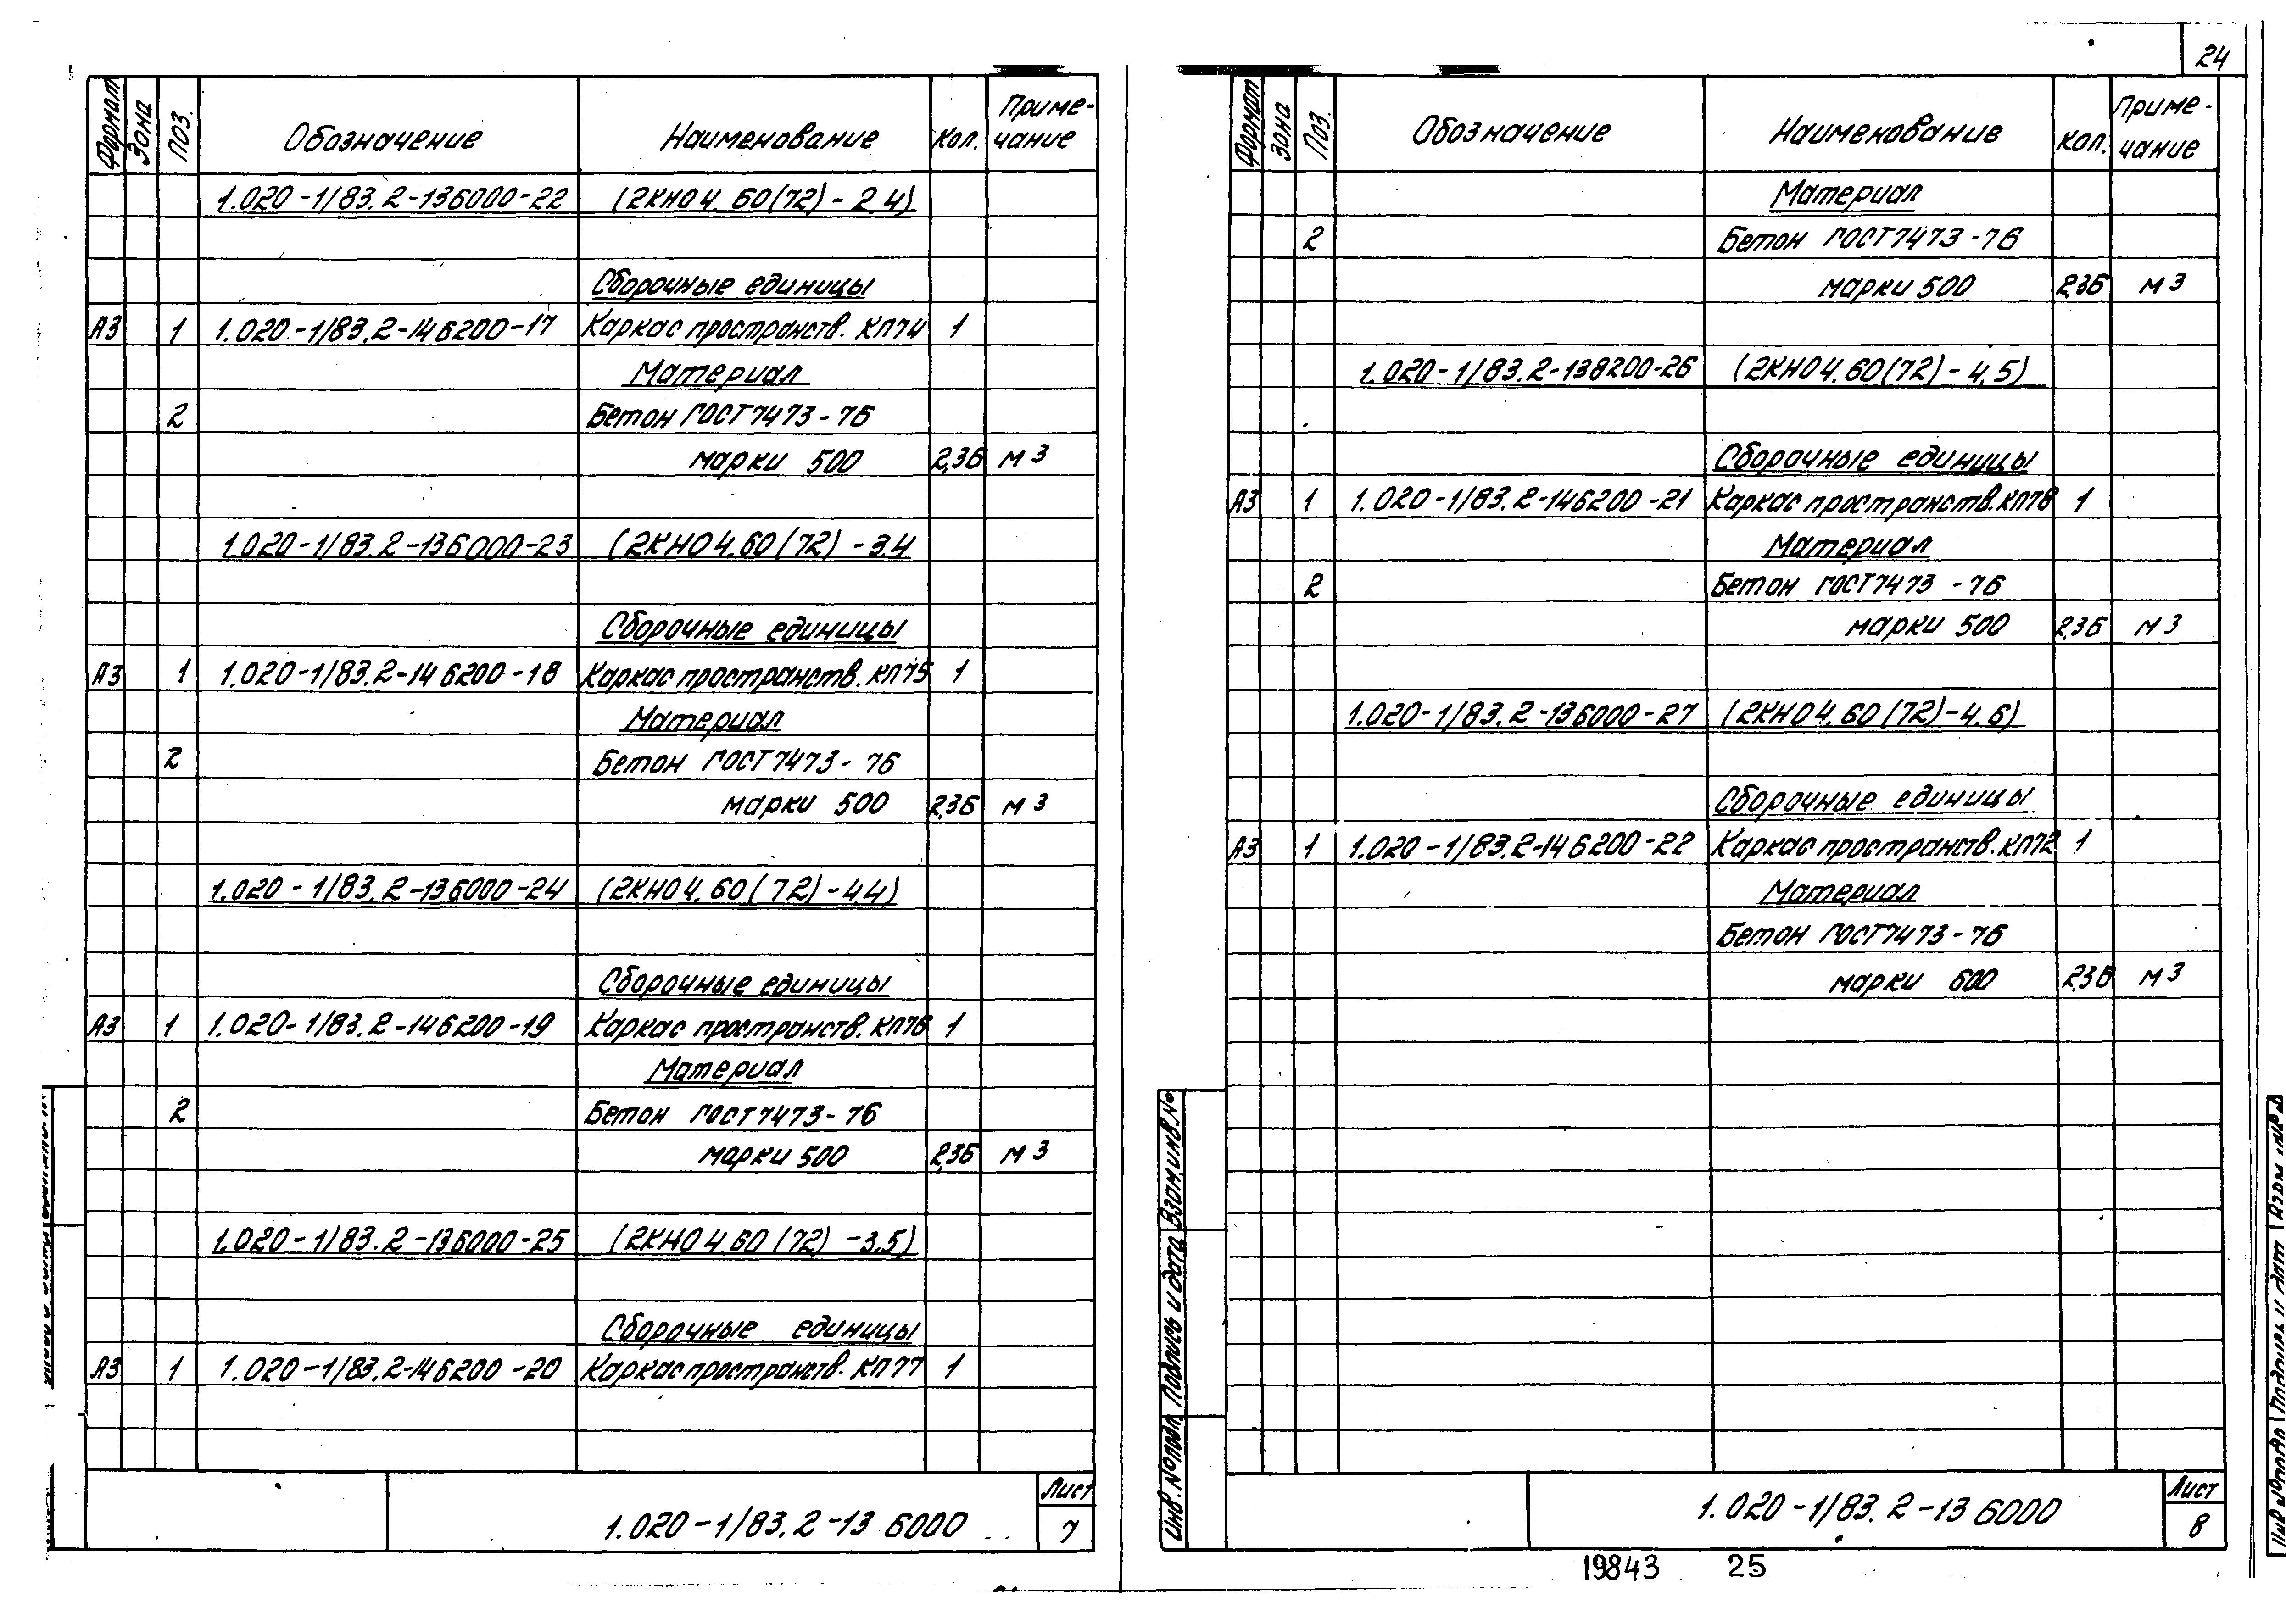 24
Формат Зона Поз. Обозначение Наименование Кол. Приме-чание
1.020-1/83.2-136000-22 (2КНО4.60(72)-2.4)
Сборочные единицы
А3 1 1.020-1/83.2-146200-17 Каркас пространств. КП74 1
Материал
2 Бетон ГОСТ7473-76
марки 500 2,36 м3
1.020-1/83.2-136000-23 (2КНО4.60(72)-3.4
Сборочные единицы
А3 1 1.020-1/83.2-146200-18 Каркас пространств. КП75 1
Материал
2 Бетон ГОСТ7473-76
марки 500 2,36 м3
1.020-1/83.2-136000-24 (2КНО4.60(72)-4.4)
Сборочные единицы
А3 1 1.020-1/83.2-146200-19 Каркас пространств. КП76 1
Материал
2 Бетон ГОСТ7473-76
марки 500 2,36 м3
1.020-1/83.2-136000-25 (2КНО4.60(72)-3.5)
Сборочные единицы
А3 1 1.020-1/83.2-146200-20 Каркас пространств. КП77 1
1.020-1/83.2-136000 Лист 7
Формат Зона Поз. Обозначение Наименование Кол. Приме-чание
Материал
2 Бетон ГОСТ7473-76
марки 500 2,36 м3
1.020-1/83.2-138200-26 (2КНО4.60(72)-4.5)
Сборочные единицы
А3 1 1.020-1/83.2-146200-21 Каркас пространств. КП78 1
Материал
2 Бетон ГОСТ7473-76
марки 500 2,36 м3
1.020-1/83.2-136000-27 (2КНО4.60(72)-4.6)
Сборочные единицы
А3 1 1.020-1/83.2-146200-22 Каркас пространств. КП72 1
Материал
Бетон ГОСТ7473-76
марки 600 2,36 м3
Инв.№подл. Подпись и дата Взам.инв.№
1.020-1/83.2-136000 Лист 8
19843 25